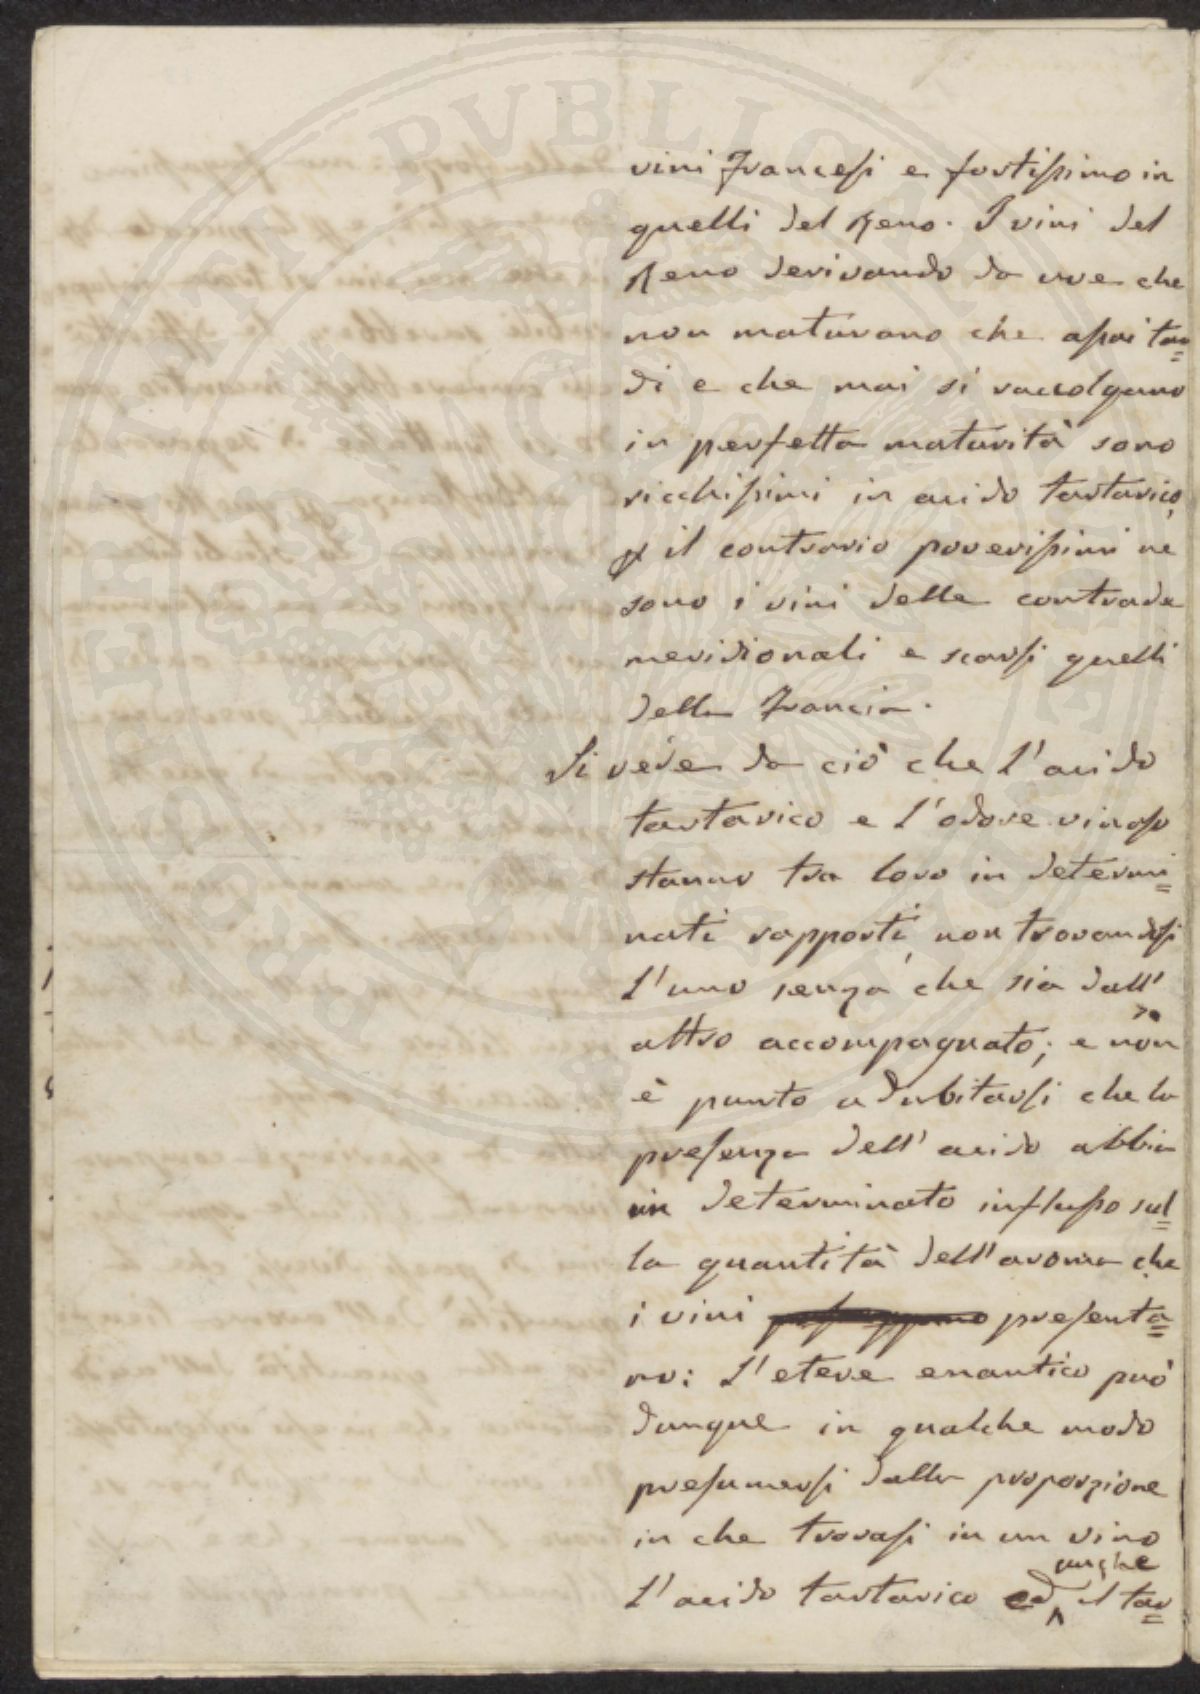 vini Francesi e fortissimo in
quelli del Reno. I vini del
Reno derivando da uve che
non maturano che assai tar=
di e che mai si raccolgano
in perfetta maturità sono
ricchissimi in acido tartarico,
il contrario poverissimi ne
sono i vini delle contrade
meridionali e scarsi quelli
della Francia.
Si vede da ciò che l'acido
tartarico e l'odore vinoso
stanno tra loro in determi=
nati rapporti, non trovandosi
l'uno senza che sia dall'
altro accompagnato; e non
è punto a dubitarsi che la
presenza dell'acido abbia
un determinato influsso sul=
la quantità dell'aroma che
i vini presenta=
no: L'etere enantico può
dunque in qualche modo
presumersi dalla proporzione
in che trovasi in un vino
anche
l'acido tartarico ed il tar=
PROSPERITATI PVBLICAE AVGENDAE